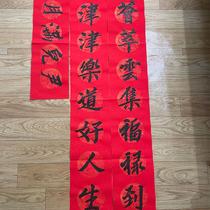 薈萃雲集福祿到
津津樂道好人生
月滿